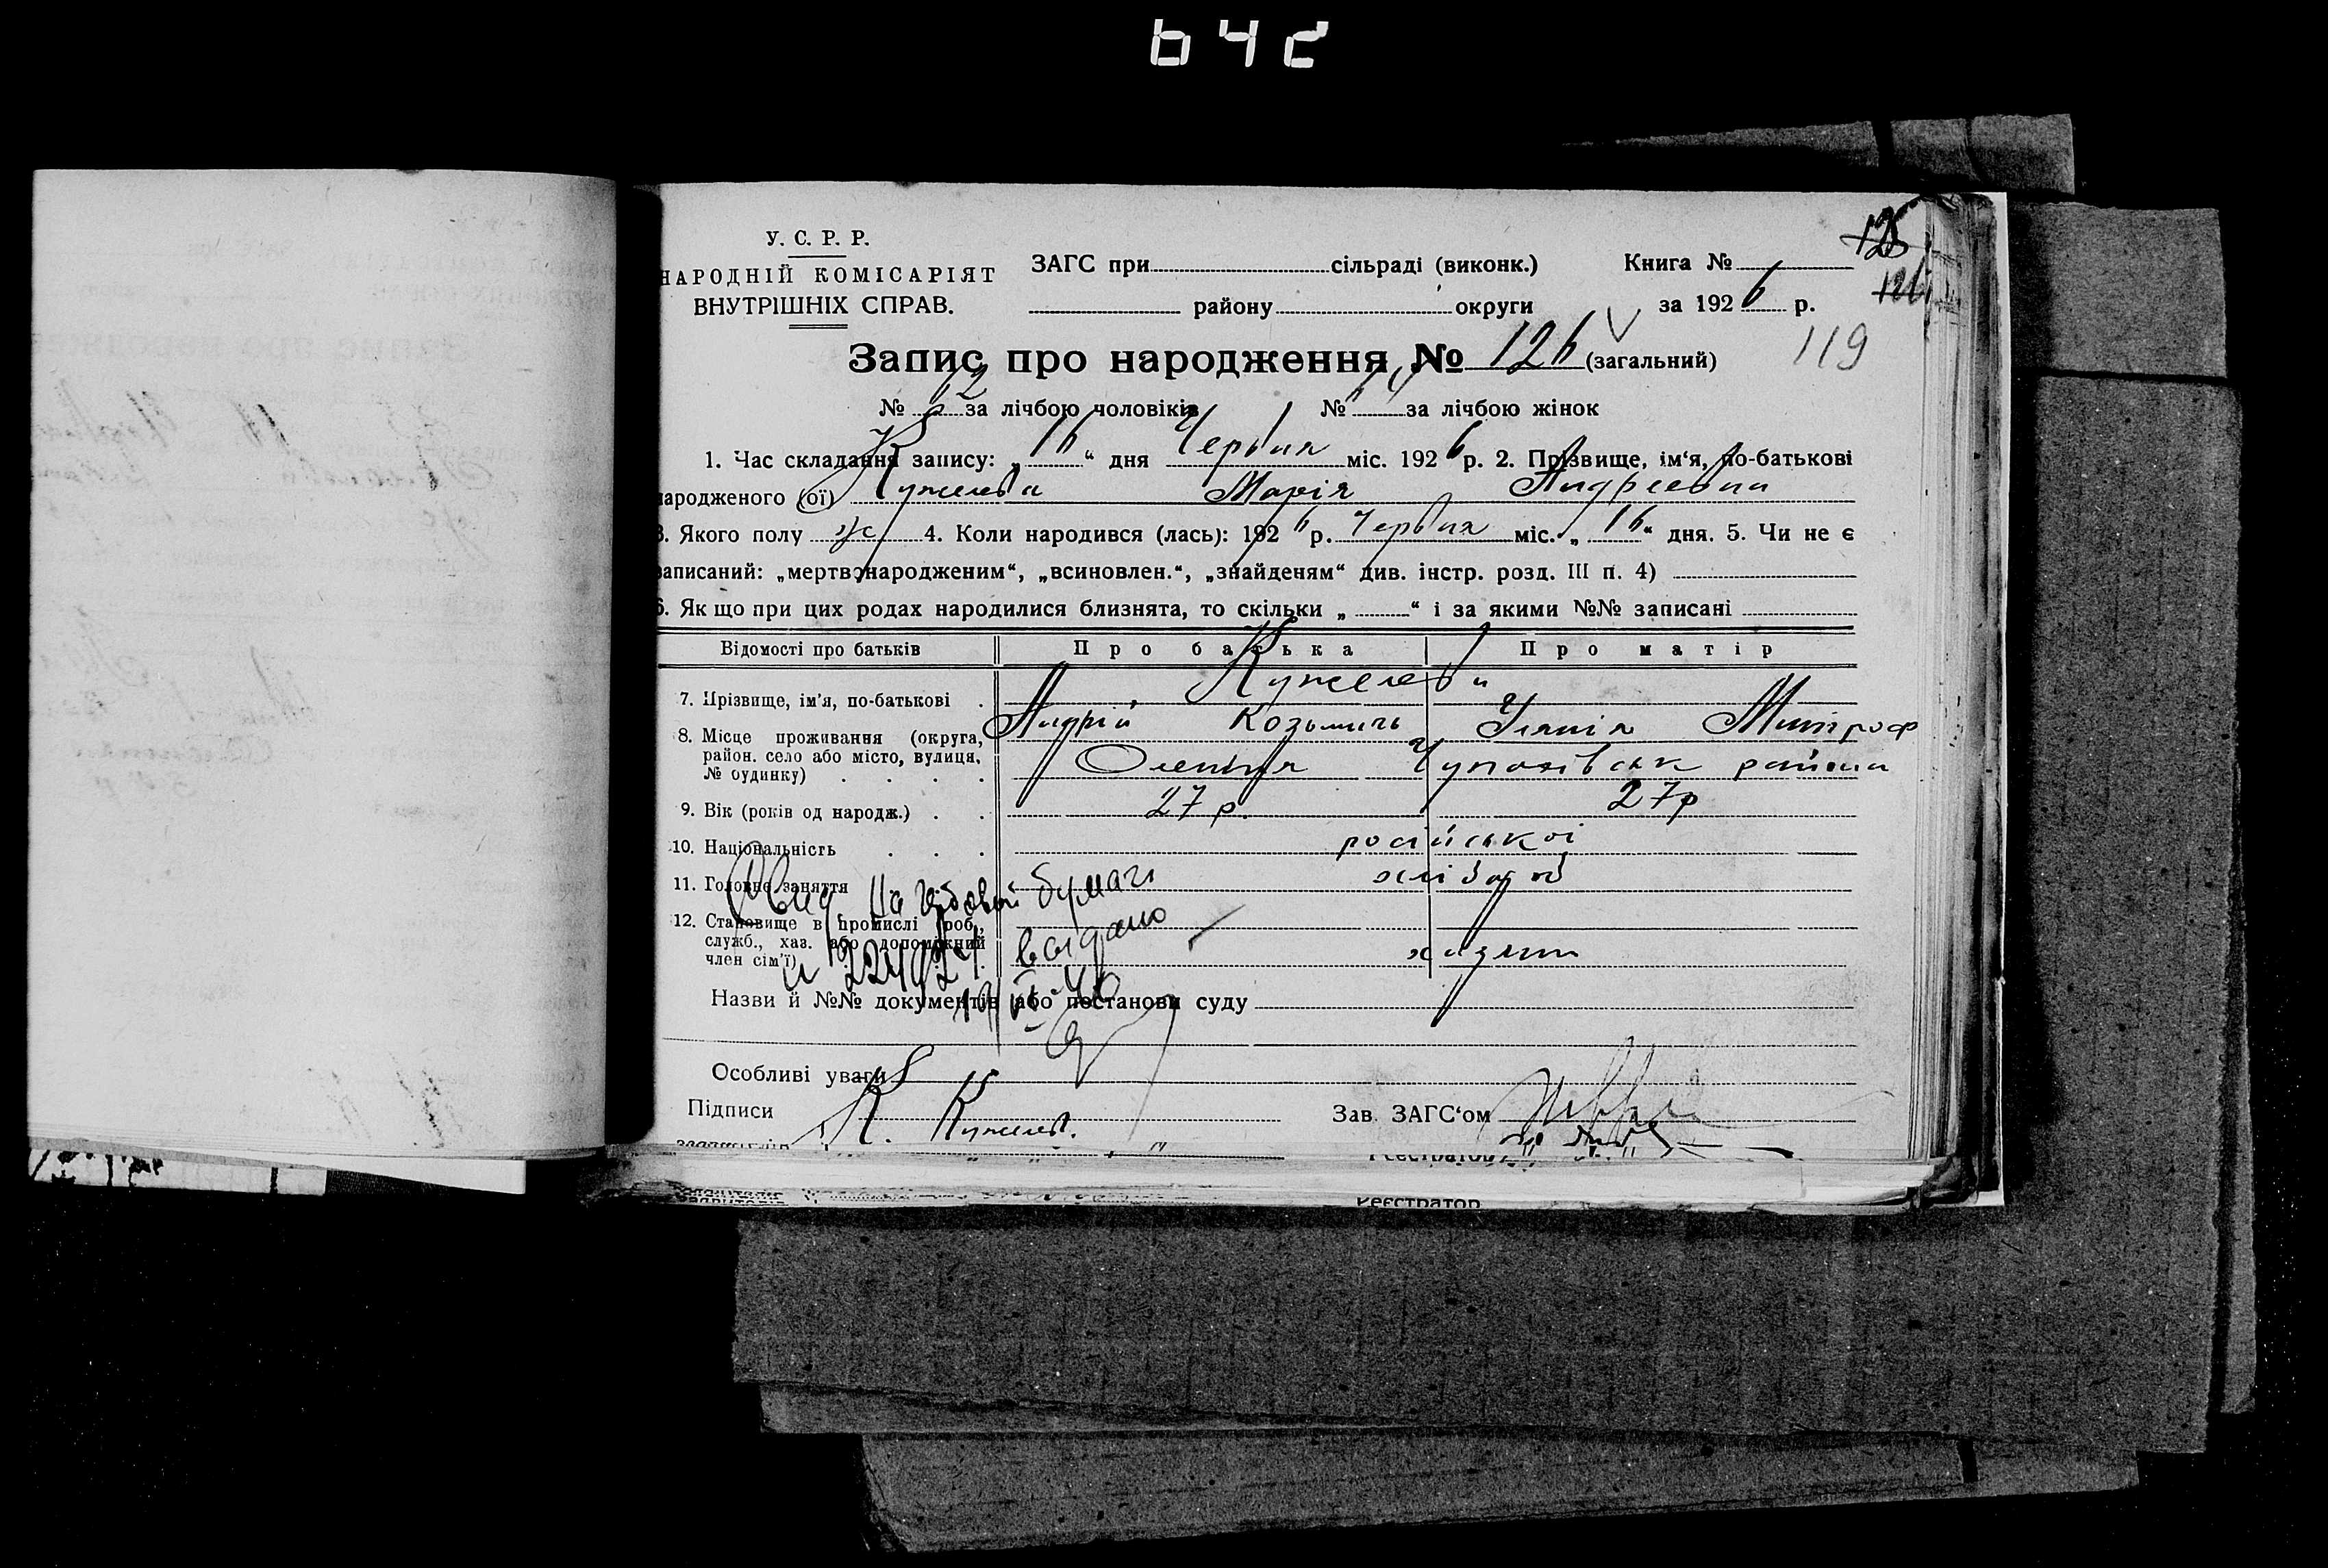 642
125
126
У. С. Р. Р.
НАРОДНІЙ КОМІСАРІЯТ
ВНУТРІШНІХ СПРАВ.
ЗАГС при сільраді (виконк.)
району округи
Книга №
за 1926 р.
119
Запис про народження № 126 (загальний)
№ 62 за лічбою чоловіків № за лічбою жінок
1. Час складання запису: „16“ дня Червня міс. 1926 р. 2. Прізвище, ім‘я, по-батькові
народженого (ої) Кужелева Марія Андреевна
3. Якого полу ж 4. Коли народився (лась): 1926 р. Червня міс. „16“ дня. 5. Чи не є
записаний: „мертвонародженим“, „всиновлен.“, „знайденям“ див. інстр. розд. III п. 4)
6. Як що при цих родах народилися близнята, то скільки „ “ і за якими №№ записані
Відомості про батьків Про батька Про матір
Кужелеви
7. Прізвище, ім‘я, по-батькові
Андрій Козьмичь Уляния Митроф
8. Місце проживання (округа,
район. село або місто, вулиця,
№ будинку)
Олениця Чупахівськ района
9. Вік (років од народж.) 27 р. 27 р
10. Національність російської
11. Головне заняття хлібороб
12. Становище в промислі (роб.,
служб., хаз. або допоміжний
член сім‘ї)
бумаги
выдано
Назви й №№ документів або постанови суду
Особливі уваги
Підписи К. Кужелев.
Зав. ЗАГС‘ом
Реєстратор
Реєстратор